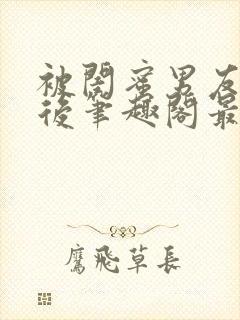 被閨蜜男友
後筆趣閣最
鷹飛草長